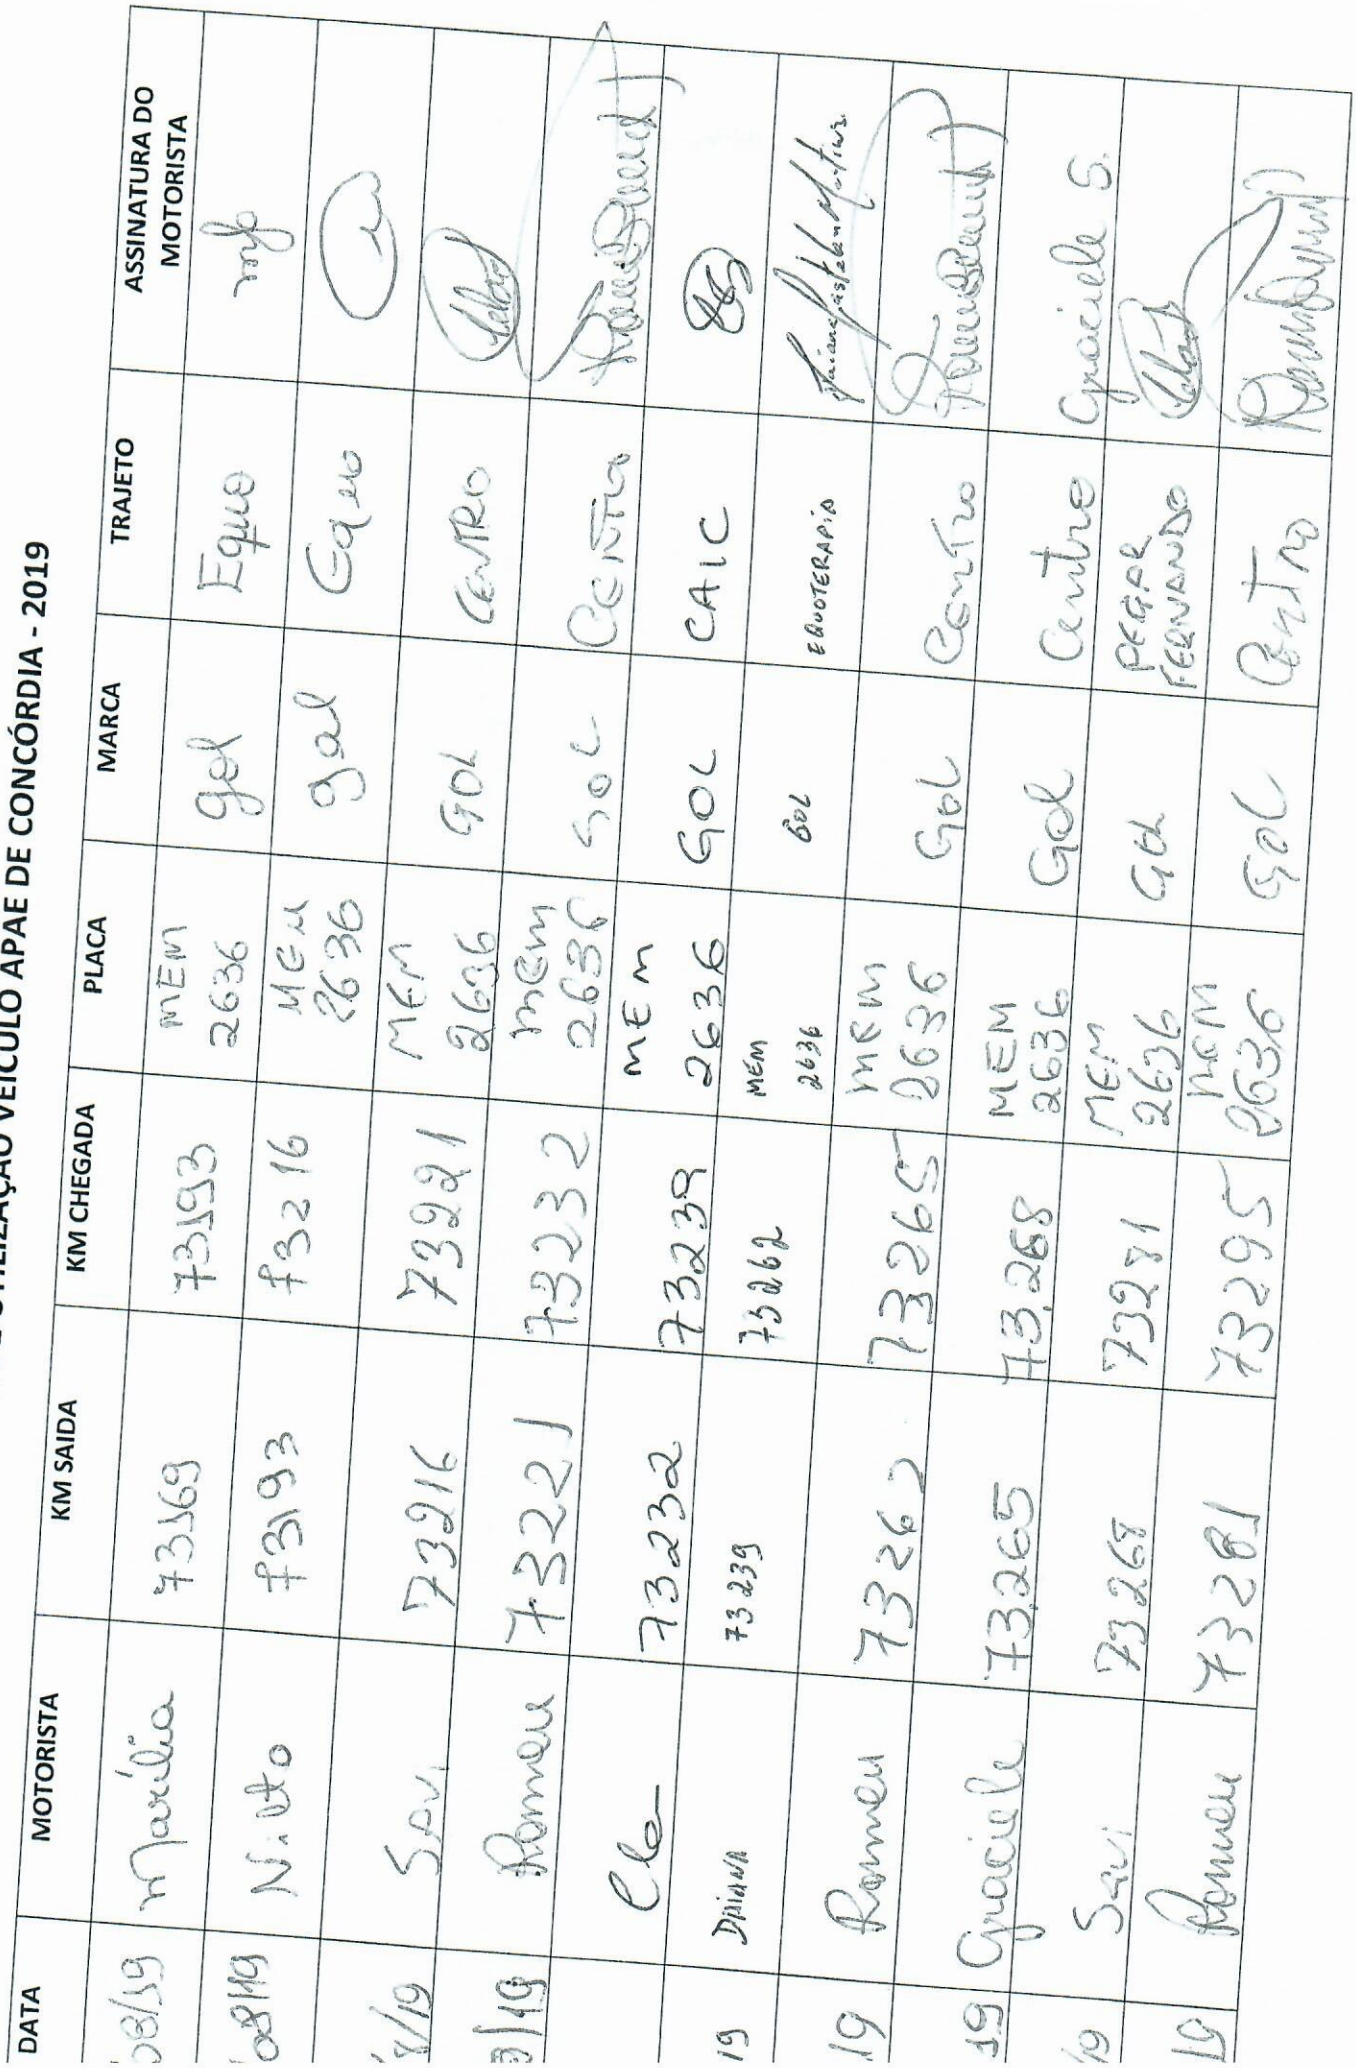 UTILIZAÇÃO VEÍCULO APAE DE CONCÓRDIA - 2019
DATA MOTORISTA KM SAIDA KM CHEGADA PLACA MARCA TRAJETO ASSINATURA DO MOTORISTA
08/19 Marília 73169 73193 MEM 2636 gol Equo
08/19 Nilto 73193 73216 MEM 2636 gol Equo
8/19 Savi 73216 73221 MEM 2636 GOL CENTRO
/19 Romeu 73221 73232 MEM 2636 GOL Centro
Cle 73232 73239 MEM 2636 GOL CAIC
19 DAIANA 73239 73262 MEM 2636 GOL EQUOTERAPIA
19 Romeu 73262 73265 MEM 2636 Gol Centro
19 Graciele 73.265 73.268 MEM 2636 Gol Centro Graciele S.
/19 Savi 73268 73281 MEM 2636 Gol PEGAR FERNANDO
19 Romeu 73281 73295 MEM 2636 Gol Centro